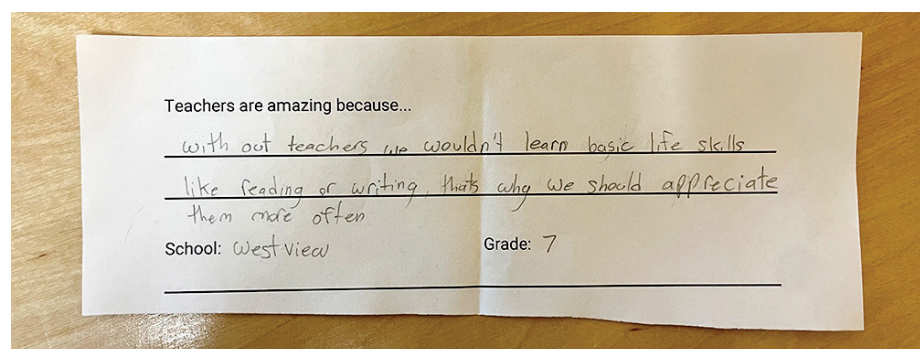 Teachers are amazing because...
with out teachers we wouldn't learn basic life skills
like reading or writing, thats why we should appreciate
them more often
School: West view Grade: 7